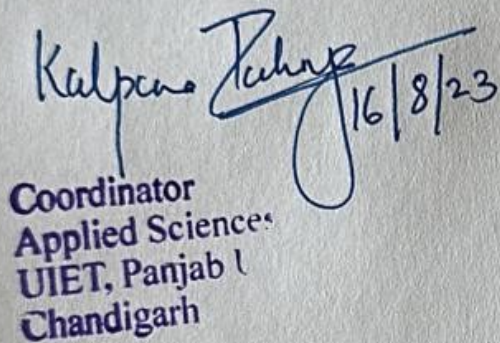 Kalpana 16/8/23
Coordinator
Applied Sciences
UIET, Panjab
Chandigarh